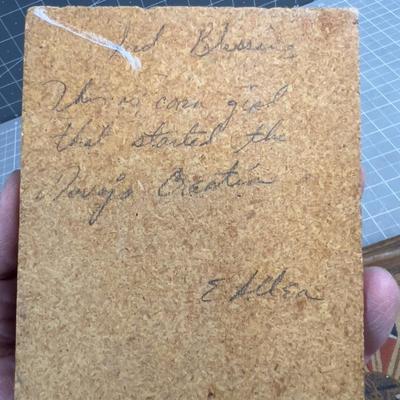 Blessing
This is corn girl
that started the
Navajo Creation
E Allen